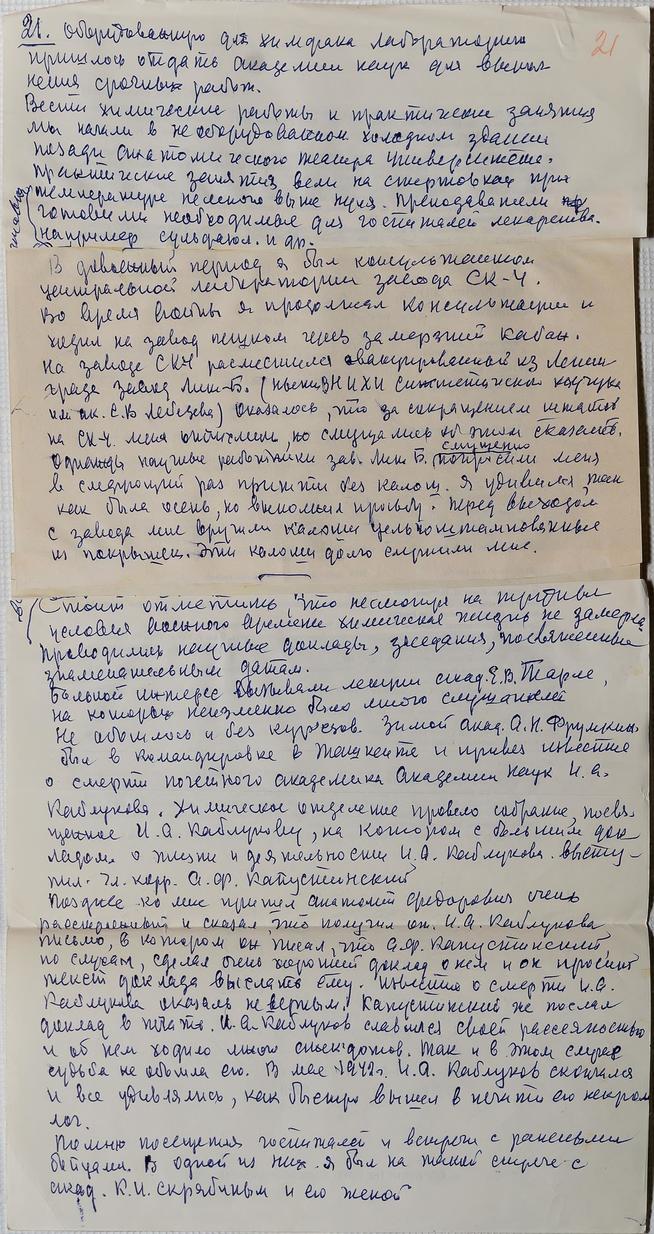 21
21. Оборудованную для химфака лабораторию
пришлось отдать Академии наук для выпол
нения срочных работ.
Вести химические работы и практические занятия
мы начали в необорудованном холодном здании
позади анатомического театра университета.
Практические занятия вели на спиртовках при
температуре немного выше нуля. Преподаватели
готовили необходимые для госпиталей лекарства.
Например сульфазол. и др.
В довоенный период я был консультантом
центральной лаборатории завода СК-4.
Во время войны я продолжал консультации и
ходил на завод пешком через замерзший Кабан.
На заводе СК4 разместился эвакуированный из Ленин
града завод Лит-Б. (ныне ВНИИ синтетического каучука
им ак. С.В Лебедева) Оказалось, что за сокращением штатов
на СК-4. меня отчислили, но смущались об этом сказать.
смущенно
Однажды научные работники зав. Лит Б. попросили меня
в следующий раз прийти без калош. Я удивился, так
как была осень, но выполнил просьбу. Перед выходом
с завода мне вручили калоши цельноштампованные
из покрышек. Эти калоши долго служили мне.
Стоит отметить, что несмотря на трудные
условия военного времени химическая жизнь не замерла
Проводились научные доклады, заседания, посвященные
знаменательным датам.
Большой интерес вызывали лекции акад. Е.В. Тарле,
на которых неизменно было много слушателей
Не обошлось и без курьезов. Зимой акад. А.Н. Фрумкин
был в командировке в Ташкенте и привез известие
о смерти почетного академика Академии Наук И.А.
Каблукова. Химическое отделение провело собрание, посвя-
щенное И.А. Каблукову, на котором с большим док
ладом о жизни и деятельности И.А. Каблукова высту-
пил чл. корр. А.Ф. Капустинский
Позднее ко мне пришел Анатолий Федорович очень
и сказал что получил от И.А. Каблукова
письмо, в котором он писал, что А.Ф. Капустинский,
по слухам, сделал очень хороший доклад о нем и он просит
текст доклада выслать ему. Известие о смерти И.А.
Каблукова оказалось неверным. Капустинский же послал
доклад в печать. И.А. Каблуков славился своей рассеяностью
и об нем ходило много анекдотов. Так и в этом случае
судьба не обошла его. В мае 1942 г. И.А. Каблуков скончался
и все удивлялись, как быстро вышел в печати его некро
лог.
Помню посещения госпиталей и встречи с ранеными
бойцами. В одной из них я был на такой встрече с
акад. К.И. Скрябиным и его женой